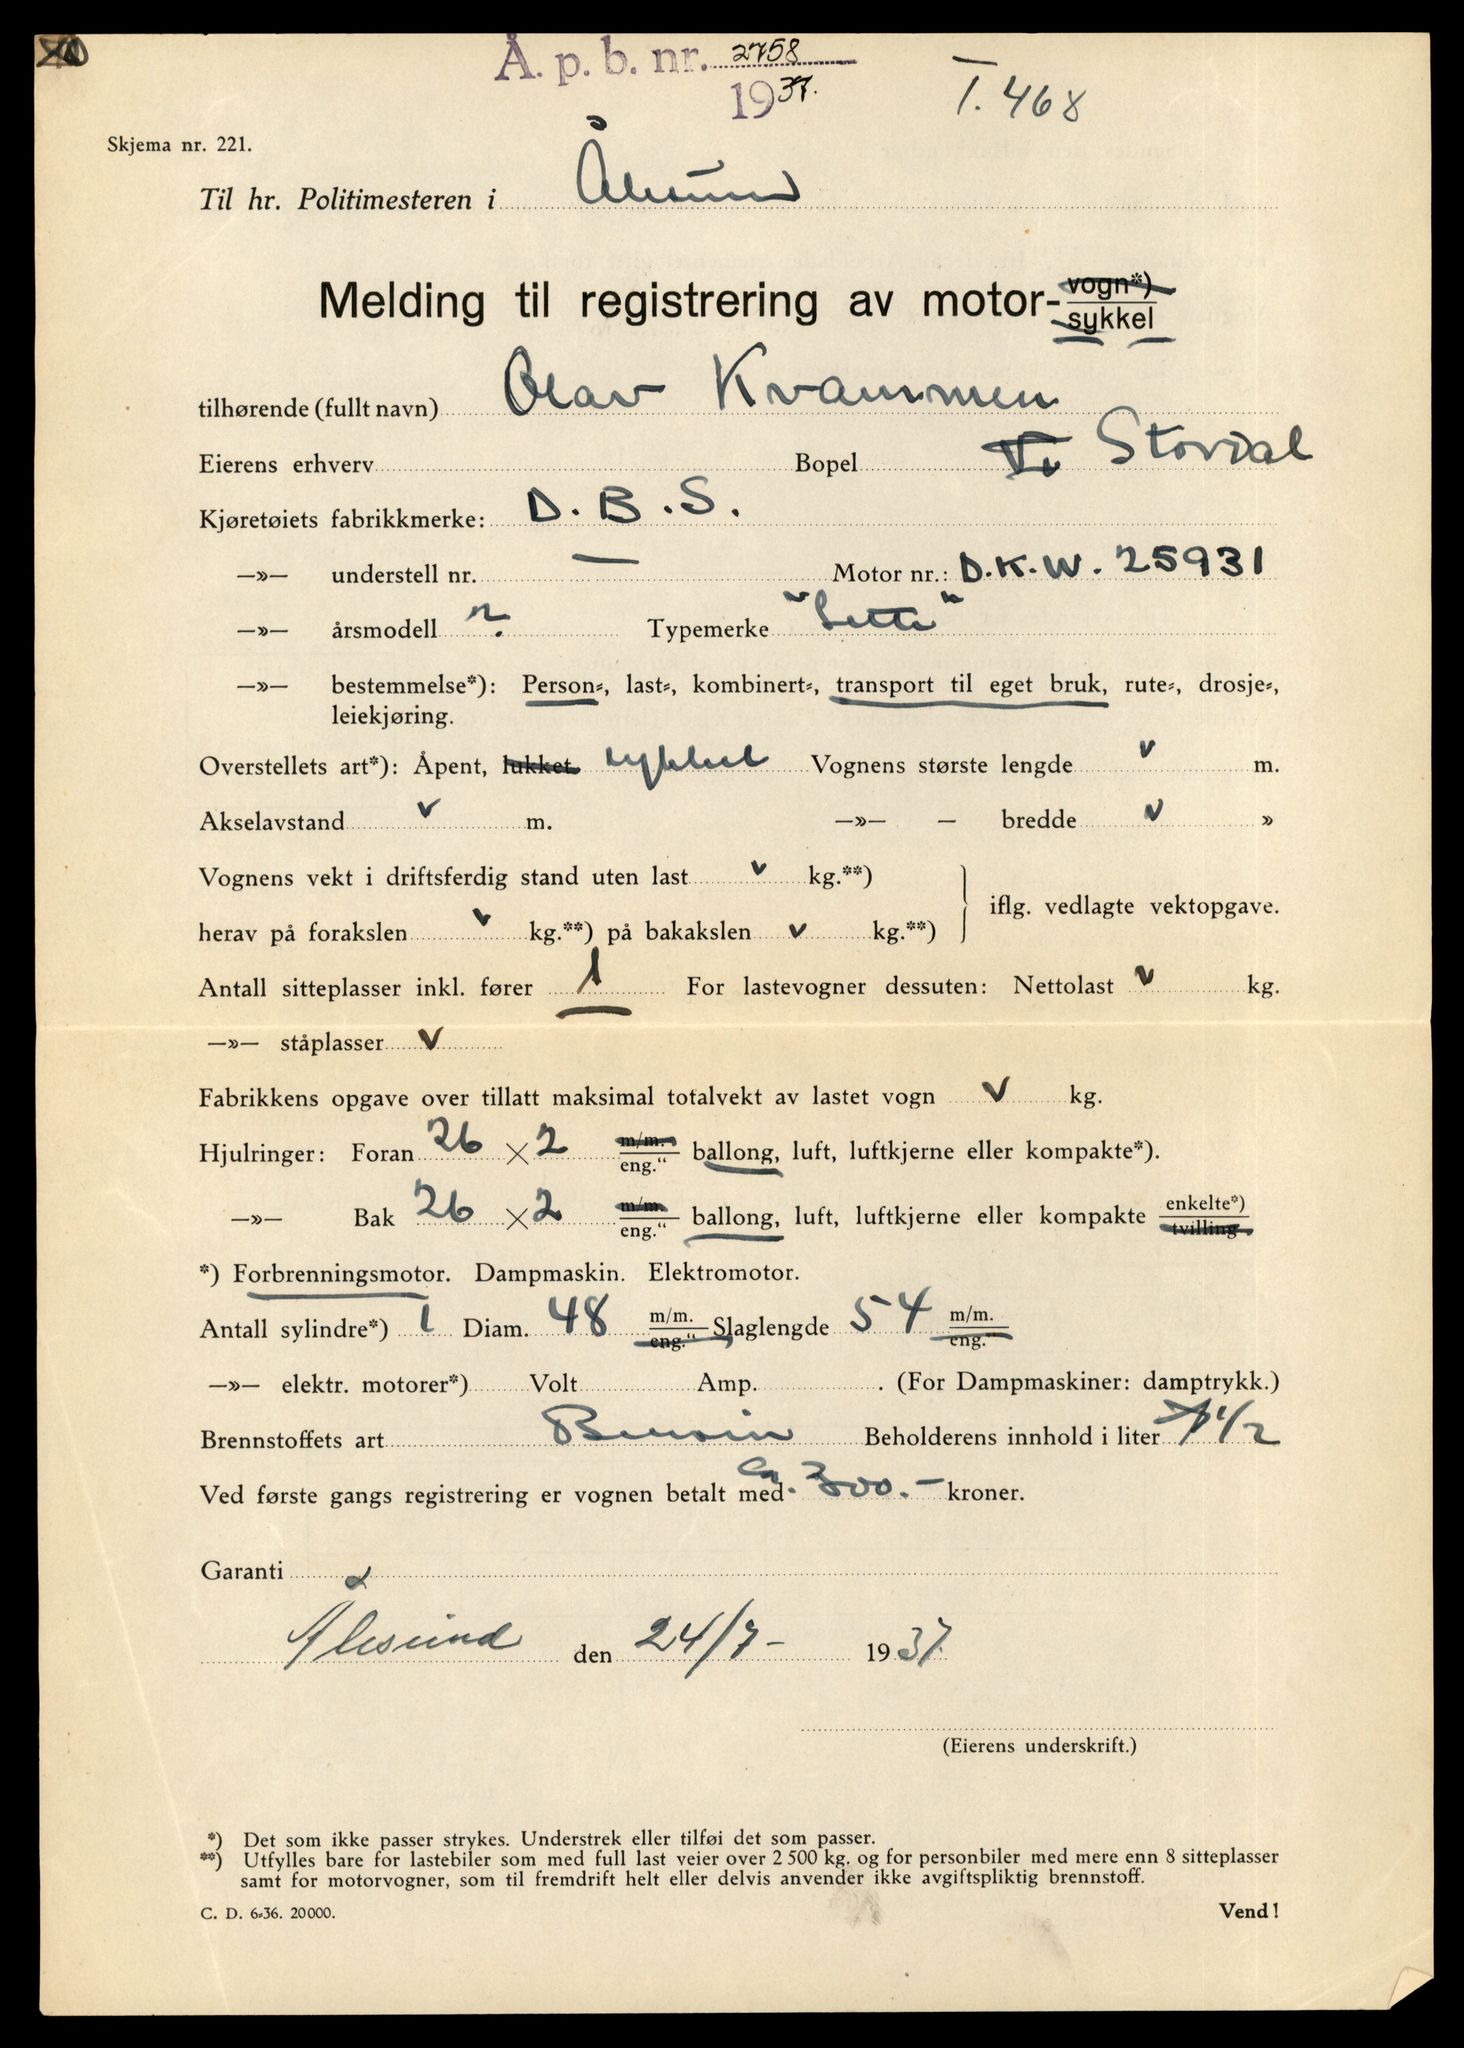 Å. p. b. nr. 2758
1937.
T. 468
Skjema nr. 221.
Til hr. Politimesteren i Ålesund
Melding til registrering av motor-vogn*) sykkel
tilhørende (fullt navn) Olav Kvammen
Eierens erhverv Bopel Stordal
Kjøretøiets fabrikkmerke: D. B. S.
—»— understell nr. — Motor nr.: D.K.W. 25931
—»— årsmodell ? Typemerke "Lette"
—»— bestemmelse*): Person-, last-, kombinert-, transport til eget bruk, rute-, drosje-,
leiekjøring.
Overstellets art*): Åpent, lukket sykkel Vognens største lengde v m.
Akselavstand v m. —»— — bredde v »
Vognens vekt i driftsferdig stand uten last v kg.**)
iflg. vedlagte vektopgave.
herav på forakslen v kg.**) på bakakslen v kg.**)
Antall sitteplasser inkl. fører 1 For lastevogner dessuten: Nettolast v kg.
—»— ståplasser v
Fabrikkens opgave over tillatt maksimal totalvekt av lastet vogn v kg.
Hjulringer: Foran 26 × 2 m/m. eng." ballong, luft, luftkjerne eller kompakte*).
—»— Bak 26 × 2 m/m. eng." ballong, luft, luftkjerne eller kompakte enkelte*) tvilling
*) Forbrenningsmotor. Dampmaskin. Elektromotor.
Antall sylindre*) 1 Diam. 48 m/m. eng." Slaglengde 54 m/m. eng."
—»— elektr. motorer*) Volt Amp. . (For Dampmaskiner: damptrykk.)
Brennstoffets art Bensin Beholderens innhold i liter 1/2
Ved første gangs registrering er vognen betalt med ca. 300.— kroner.
Garanti
Ålesund den 24/7- 1937.
(Eierens underskrift.)
*) Det som ikke passer strykes. Understrek eller tilføi det som passer.
**) Utfylles bare for lastebiler som med full last veier over 2 500 kg. og for personbiler med mere enn 8 sitteplasser
samt for motorvogner, som til fremdrift helt eller delvis anvender ikke avgiftspliktig brennstoff.
C. D. 6-36. 20000.
Vend!